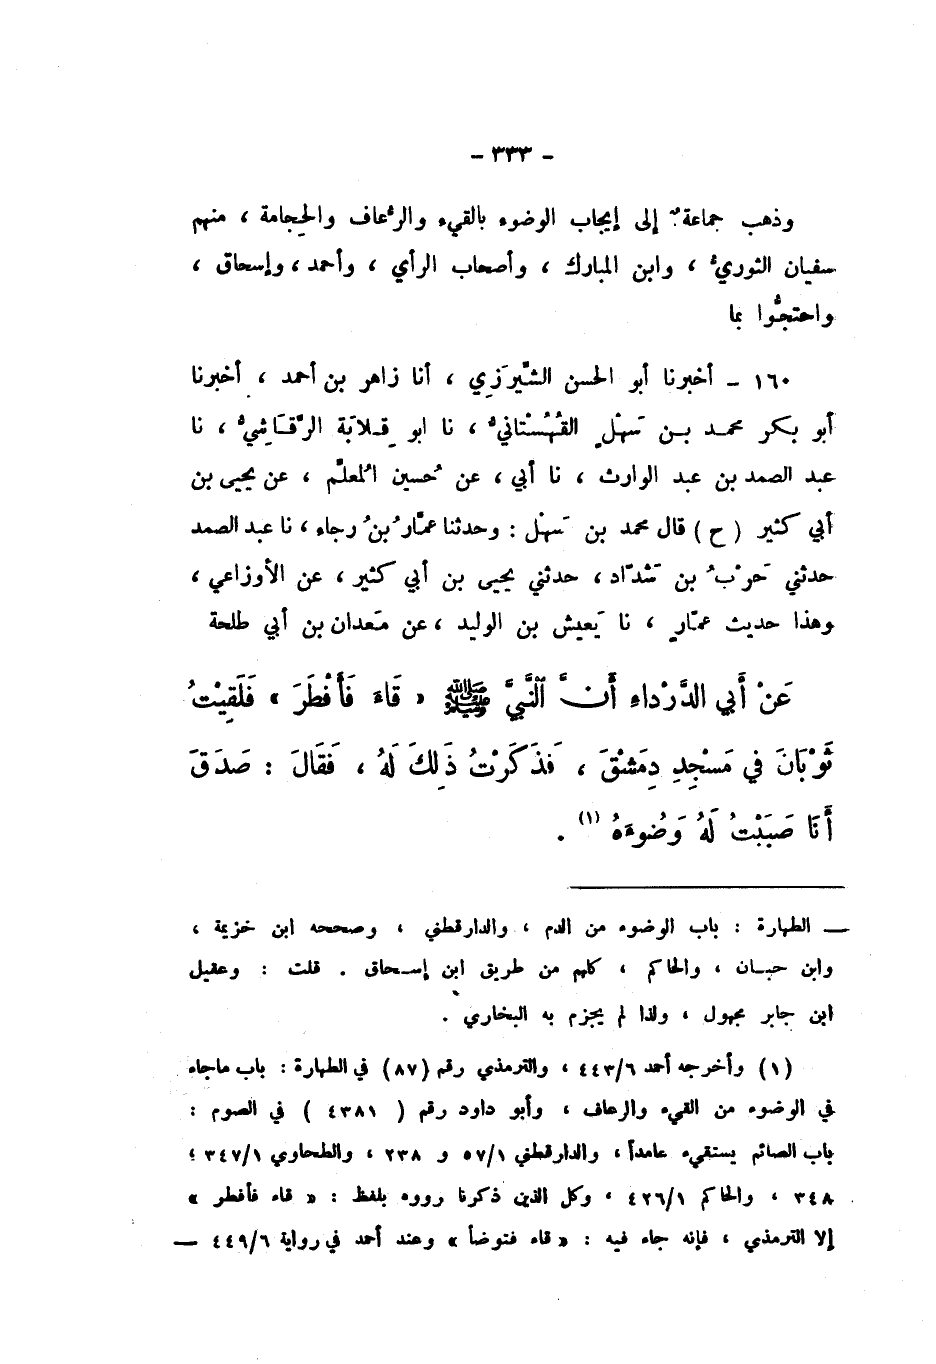 - ٣٣٣ -
وذهب جماعةٌ إلى إيجاب الوضوء بالقيء والرُّعاف والحِجامة ، منهم
سفيان الثوريُّ ، وابن المبارك ، وأصحاب الرأي ، وأحمد ، وإسحاق ،
واحتجُّوا بما
١٦٠ - أخبرنا أبو الحسن الشِّيرَزي ، أنا زاهر بن أحمد ، أخبرنا
أبو بكر محمد بن سَهْلٍ القُهُسْتانيُّ ، نا ابو قِلابَة الرَّقَاشِيُّ ، نا
عبد الصمد بن عبد الوارث ، نا أبي ، عن حُسين المُعلِّم ، عن يحيى بن
أبي كثير ( ح ) قال محمد بن سَهْل : وحدثنا عمَّارُ بنُ رجاء ، نا عبد الصمد
حدثني حَرْبُ بن شَدَّاد ، حدثني يحيى بن أبي كثير ، عن الأوزاعي ،
وهذا حديث عمَّارٍ ، نا يَعيش بن الوليد ، عن مَعدان بن أبي طلحة
عَنْ أَبي الدَّرْداءِ أَنَّ النَّبيَّ ﷺ « قَاءَ فَأَفْطَرَ » فَلَقِيْتُ
ثَوْبَانَ في مَسْجِدِ دِمَشْقَ ، فَذَكَرْتُ ذَلِكَ لَهُ ، فَقَالَ : صَدَقَ
أَنَا صَبَبْتُ لَهُ وَضُوءَهُ (١) .
— الطهارة : باب الوضوء من الدم ، والدارقطني ، وصححه ابن خزيمة ،
وابن حبان ، والحاكم ، كلهم من طريق ابن إسحاق . قلت : وعقيل
ابن جابر مجهول ، ولذا لم يجزم به البخاري .
(١) وأخرجه أحمد ٤٤٣/٦ ، والترمذي رقم (٨٧) في الطهارة : باب ماجاء
في الوضوء من القيء والرعاف ، وأبو داود رقم ( ٤٣٨١ ) في الصوم :
باب الصائم يستقيء عامداً ، والدارقطني ٥٧/١ و ٢٣٨ ، والطحاوي ٣٤٧/١ ؛
٣٤٨ ، والحاكم ٤٢٦/١ ، وكل الذين ذكرنا رووه بلفظ : « قاء فأفطر »
إلا الترمذي ، فإنه جاء فيه : « قاء فتوضأ » وعند أحمد في رواية ٤٤٩/٦ —